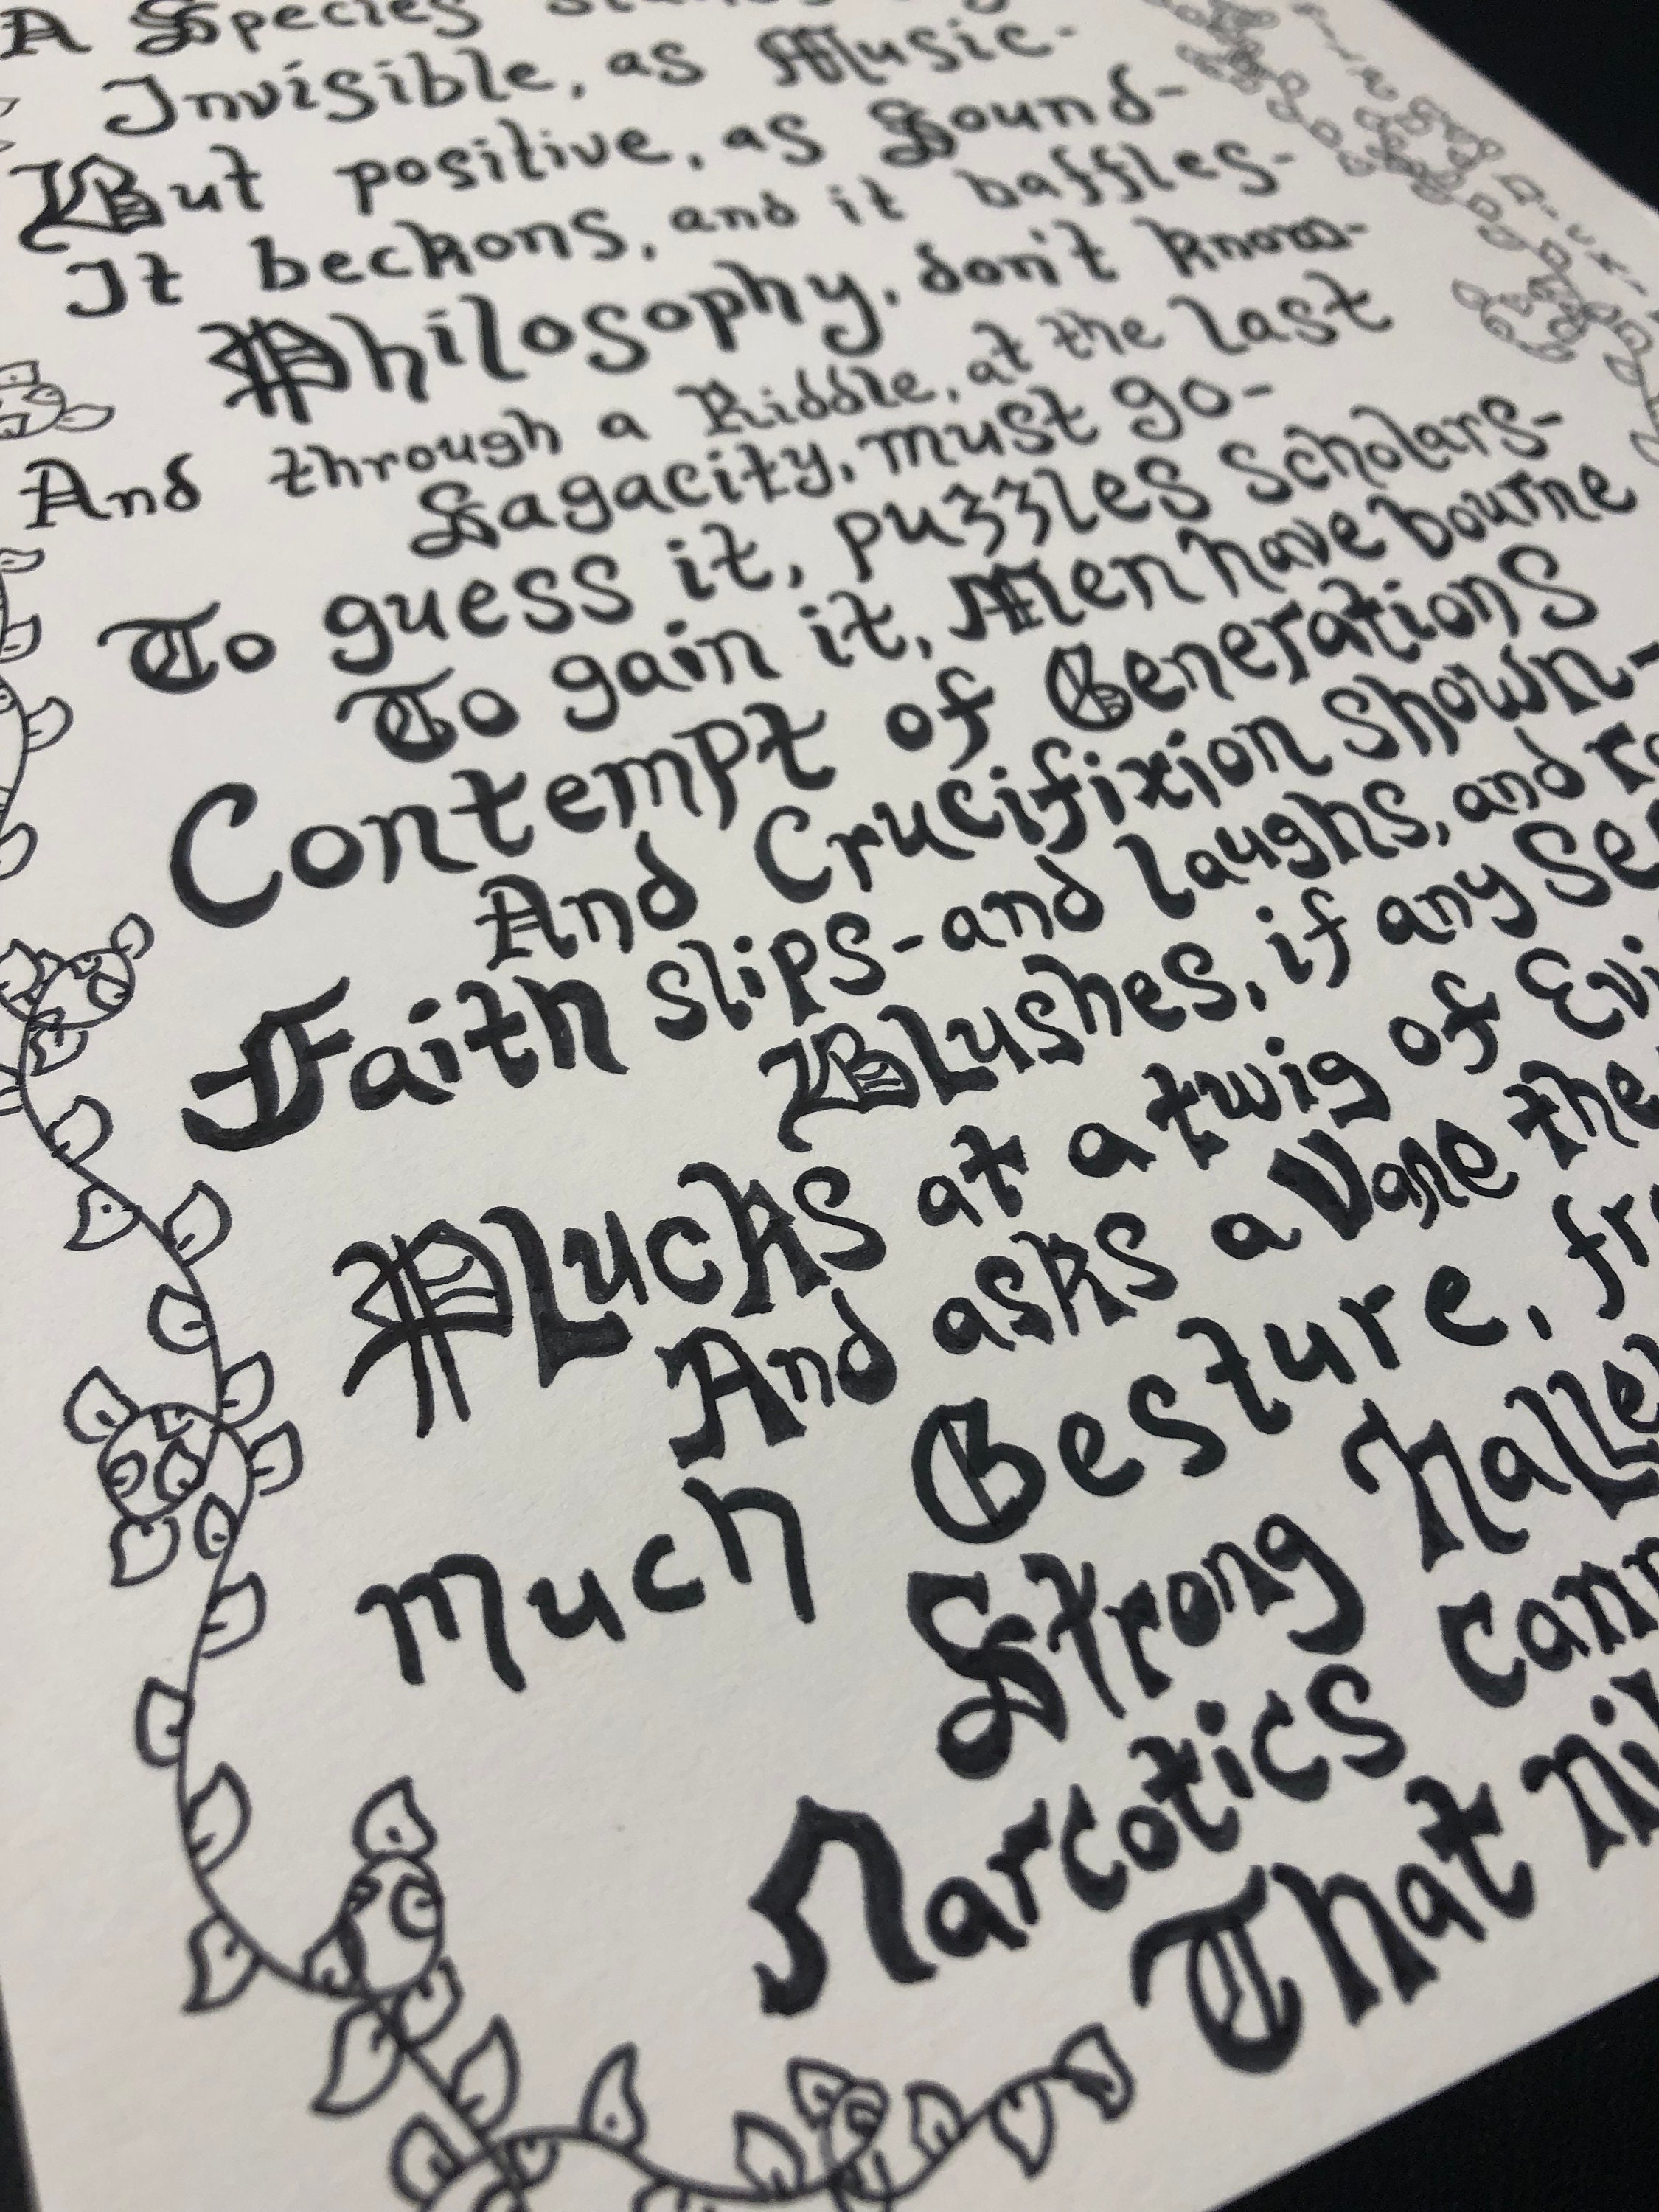 A Species
Invisible, as Music-
But positive, as Sound-
It beckons, and it baffles-
Philosophy, don't know-
And through a Riddle, at the last
Sagacity, must go-
To guess it, puzzles scholars-
To gain it, Men have bourne
Contempt of Generations
And Crucifixion shown-
Faith slips-and laughs, and
Blushes, if any
Plucks at a twig of
And asks a Vane the
Much Gesture,
Strong
Narcotics
That